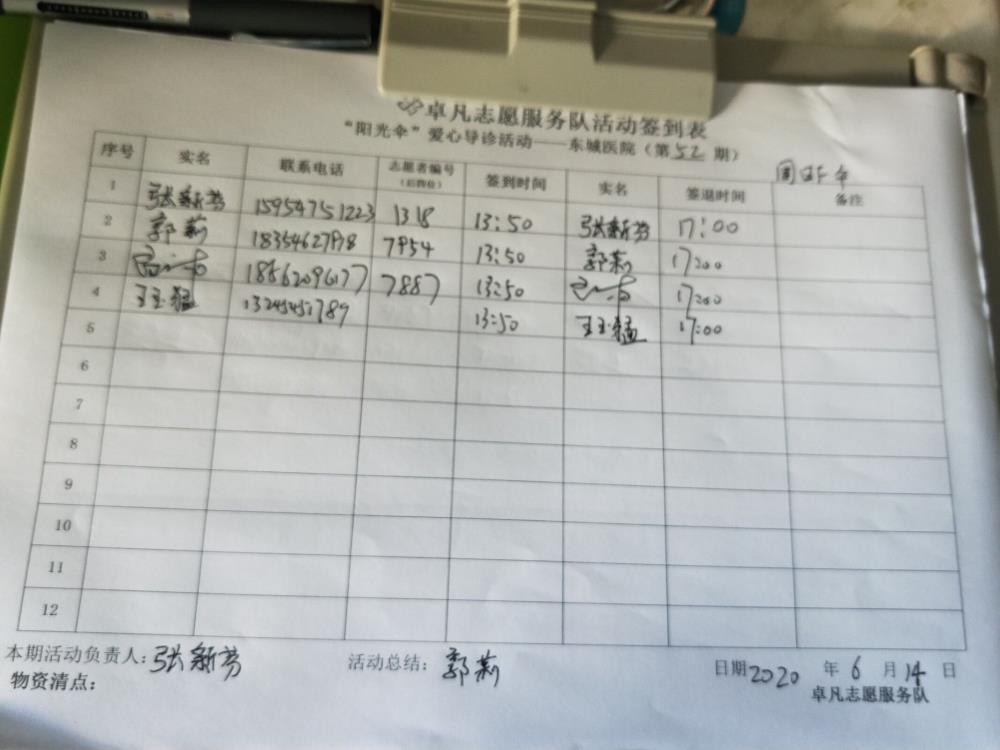 卓凡志愿服务队活动签到表
“阳光伞”爱心导诊活动——东城医院(第52期)
周日下午
序号 实名 联系电话 志愿者编号(后四位) 签到时间 实名 签退时间 备注
1 张新芳 15954751223 1318 13:50 张新芳 17:00
2 郭莉 18354627918 7954 13:50 郭莉 17:00
3 18862096177 7887 13:50 17:00
4 王玉猛 13:50 王玉猛 17:00
5
6
7
8
9
10
11
12
本期活动负责人:张新芳 活动总结:郭莉 日期2020年6月14日
物资清点: 卓凡志愿服务队